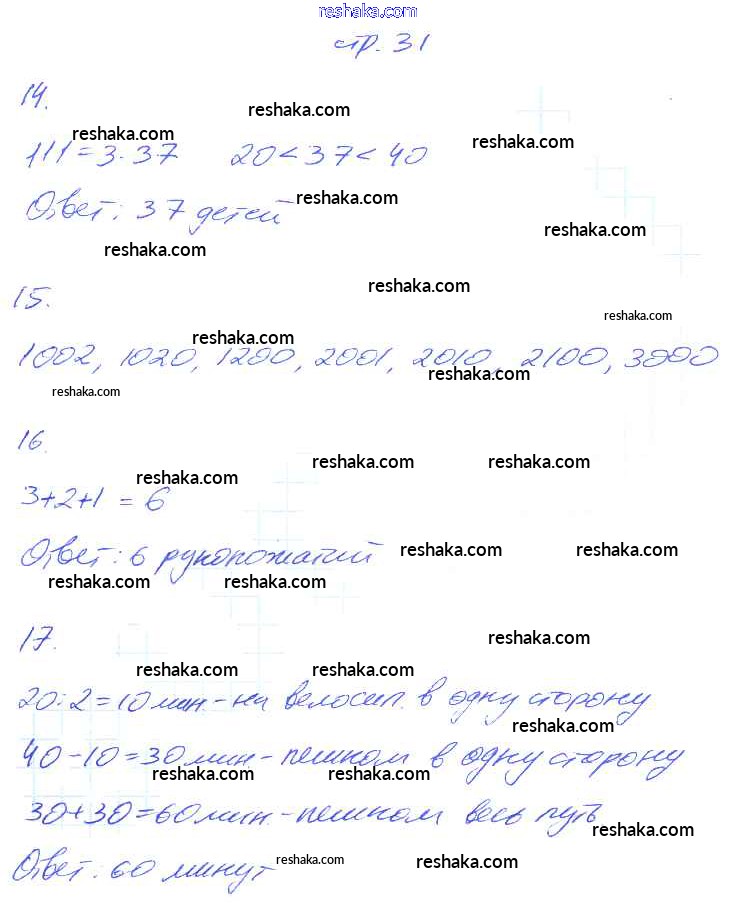 reshaka.com
стр. 31
14.
reshaka.com
reshaka.com
reshaka.com
111 = 3·37 20 < 37 < 40
reshaka.com
Ответ: 37 детей
reshaka.com
reshaka.com
reshaka.com
15.
reshaka.com
reshaka.com
1002, 1020, 1200, 2001, 2010, 2100, 3000
reshaka.com
reshaka.com
16.
reshaka.com
reshaka.com
reshaka.com
3+2+1 = 6
Ответ: 6 рукопожатий
reshaka.com
reshaka.com
reshaka.com
reshaka.com
17.
reshaka.com
reshaka.com
reshaka.com
20:2=10 мин - на велосип. в одну сторону
reshaka.com
40-10=30 мин - пешком в одну сторону
reshaka.com
reshaka.com
30+30=60 мин. - пешком весь путь
reshaka.com
Ответ: 60 минут
reshaka.com
reshaka.com